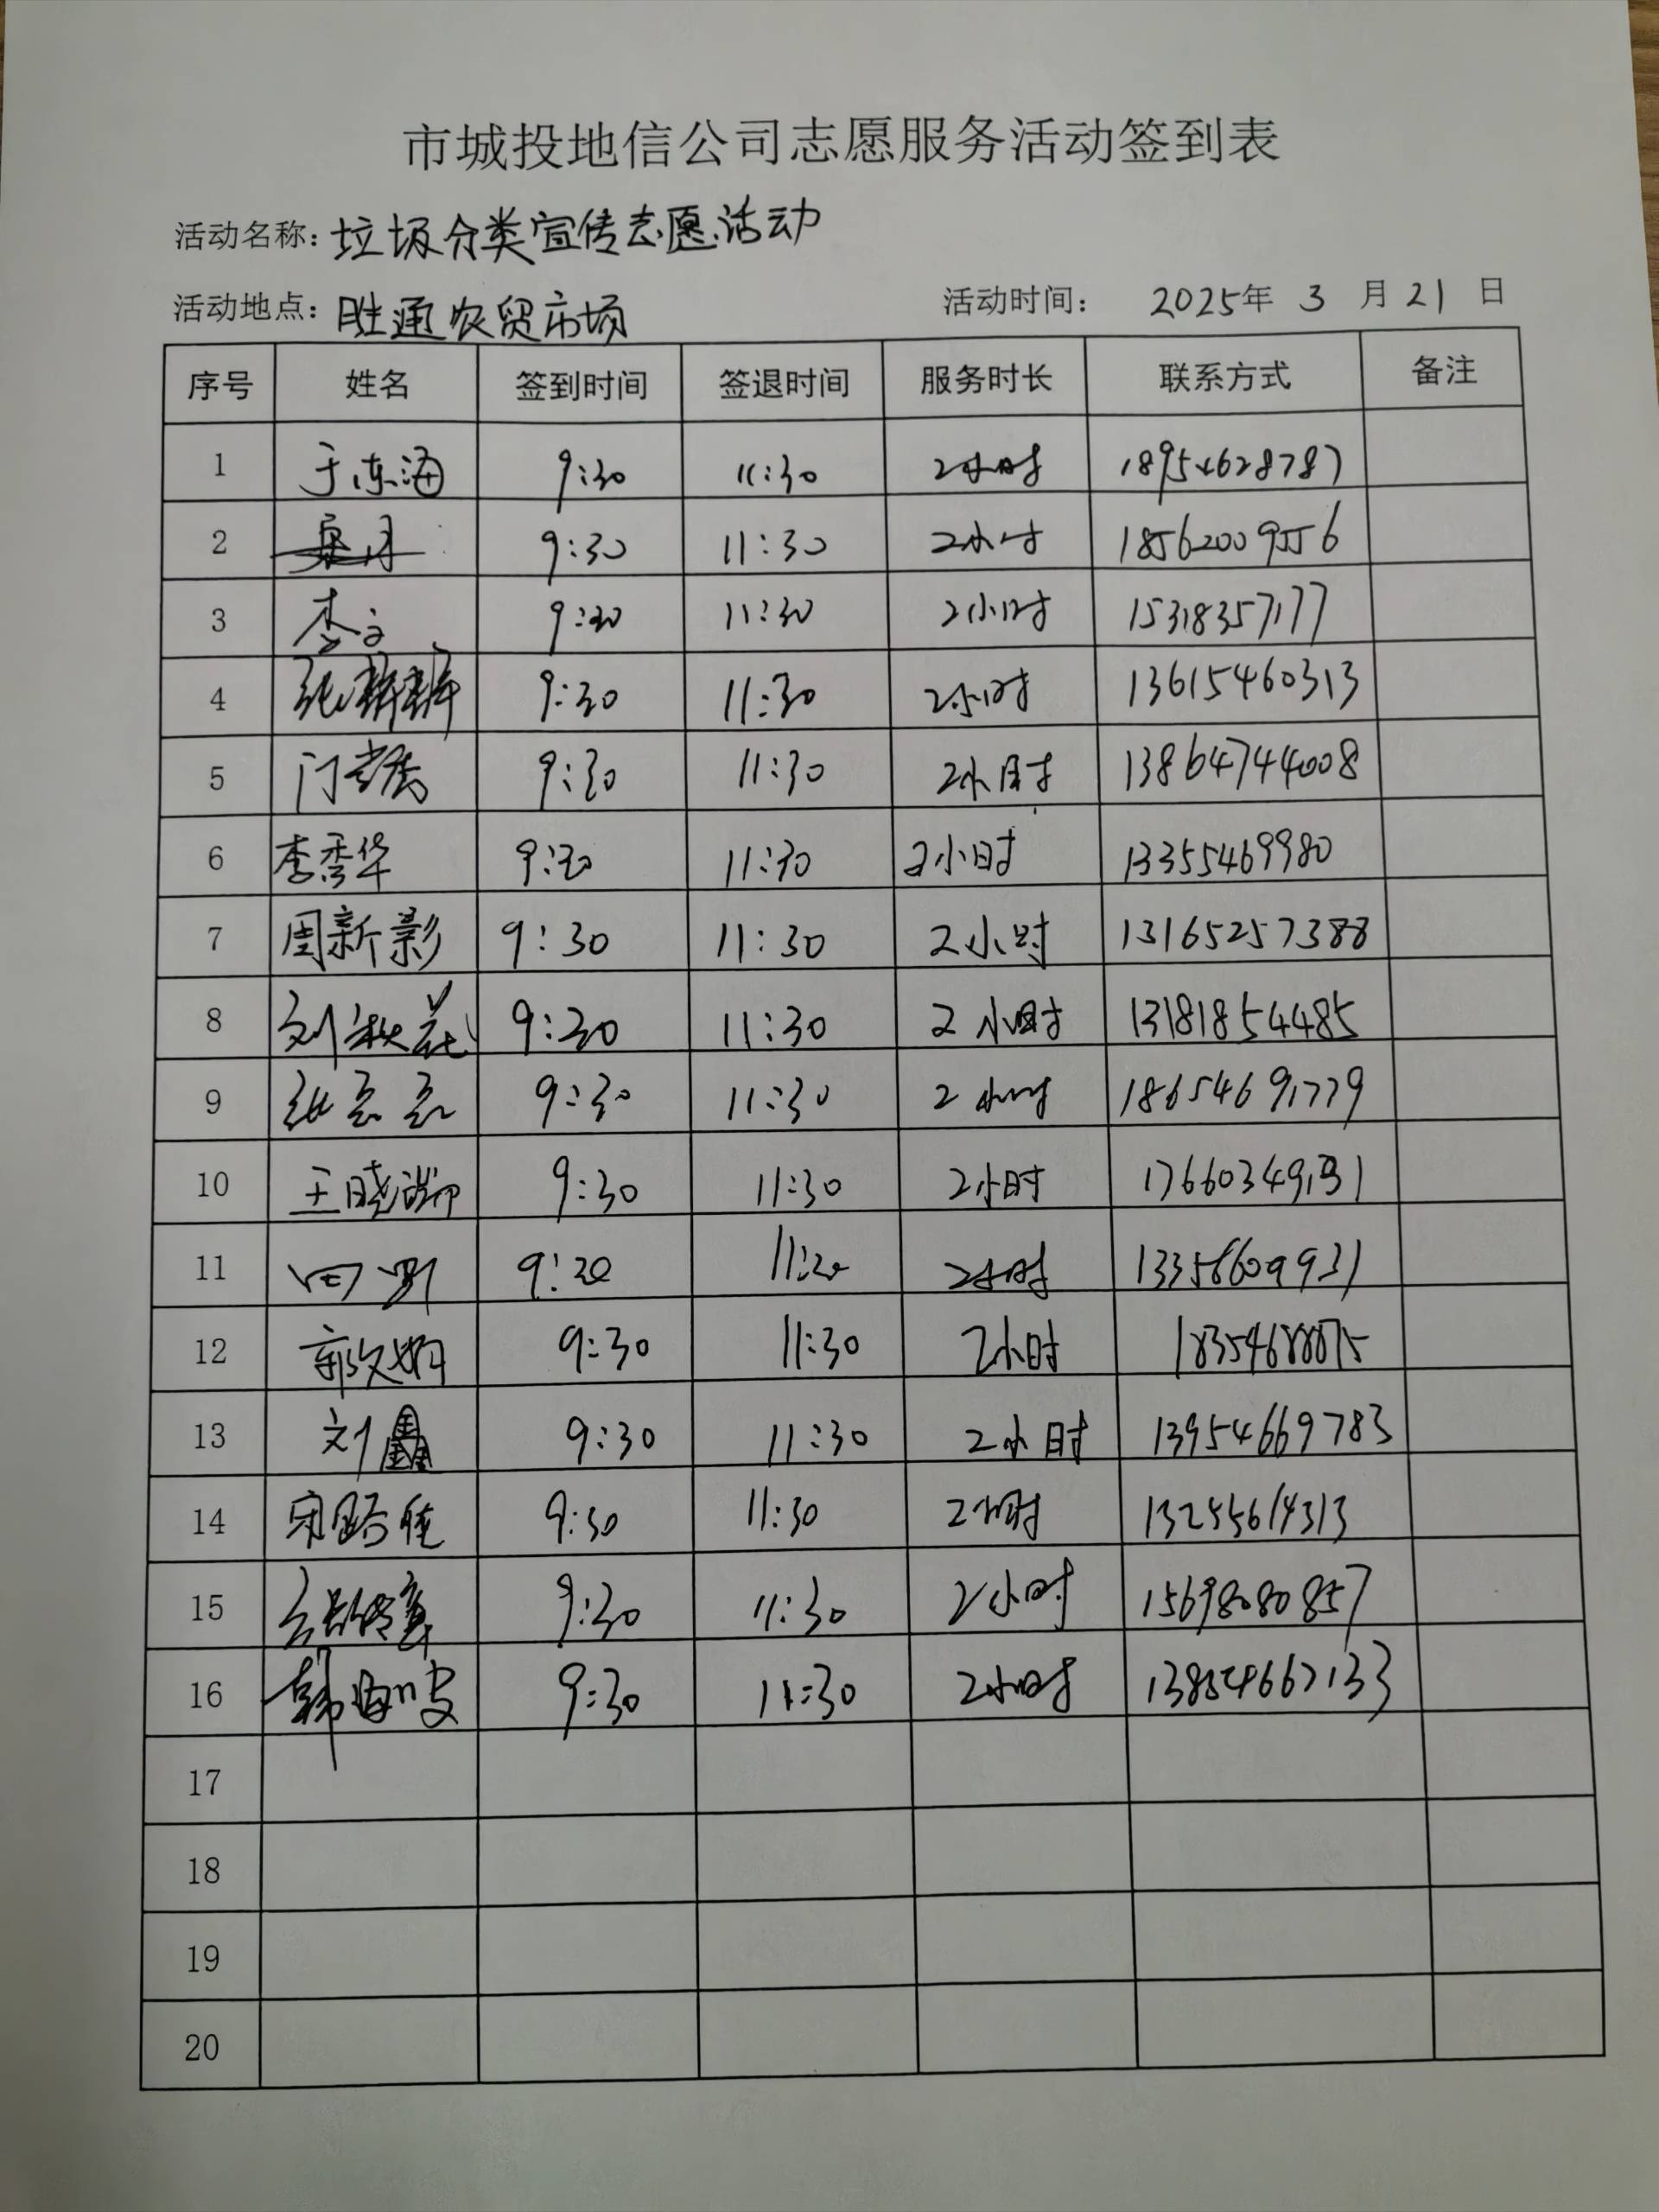 市城投地信公司志愿服务活动签到表
活动名称：垃圾分类宣传志愿活动
活动地点：胜通农贸市场 活动时间： 2025年 3 月 21 日
序号 姓名 签到时间 签退时间 服务时长 联系方式 备注
1 于东海 9:30 11:30 2小时 18954628787
2 9:30 11:30 2小时 18562009556
3 李文 9:30 11:30 2小时 15318357177
4 9:30 11:30 2小时 13615460313
5 9:30 11:30 2小时 13864744008
6 李秀华 9:30 11:30 2小时 13355469980
7 周新影 9:30 11:30 2小时 13165257388
8 刘秋花 9:30 11:30 2小时 13181854485
9 张亮亮 9:30 11:30 2小时 18654691779
10 王晓瑞 9:30 11:30 2小时
11 2小时
12 郭文娟 9:30 11:30 2小时
13 刘鑫 9:30 11:30 2小时 13954669783
14 9:30 11:30 2小时
15 9:30 11:30 2小时 15698080857
16 韩海波 9:30 11:30 2小时
17
18
19
20